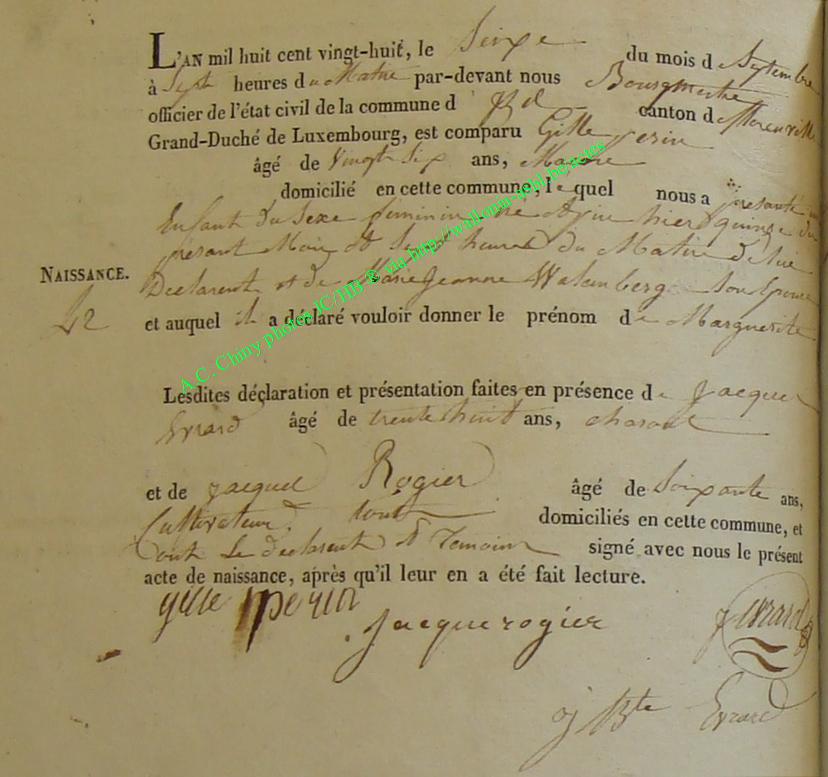 L'AN mil huit cent vingt-huit, le Seixe du mois d Septembre
à Sept heures du Matin par-devant nous Bourgmestre
officier de l'état civil de la commune d canton de
Grand-Duché de Luxembourg, est comparu Gille perin
âgé de Vingt Six ans, Macon
domicilié en cette commune, lequel nous a présenté un
Enfant du Sexe féminin né hier quinze du
présant Mois à Sept heures du Matin de lui
NAISSANCE. Declarent et de Marie Jeanne Walenberg Son Epouse
42 et auquel il a déclaré vouloir donner le prénom de Marguerite
Lesdites déclaration et présentation faites en présence de Jacque
Evrard âgé de trente huit ans,
et de jacque Rogier âgé de Soixante ans,
Cultivateur. tout domiciliés en cette commune, et
ont Le declarent et Temoins signé avec nous le présent
acte de naissance, après qu'il leur en a été fait lecture.
gille perin
Jacque rogier
J evrard
j Bte Evrard
A.C. Chiny photos JC/HB ® via http://wallonia-gold.be.actes